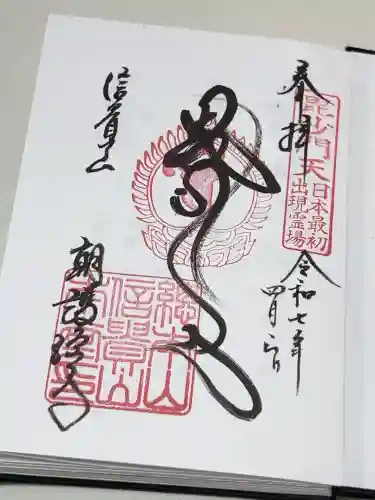 奉拝
毘沙門天
日本最初
出現霊場
令和七年
四月
信貴山
朝護孫子
総本山
信貴山